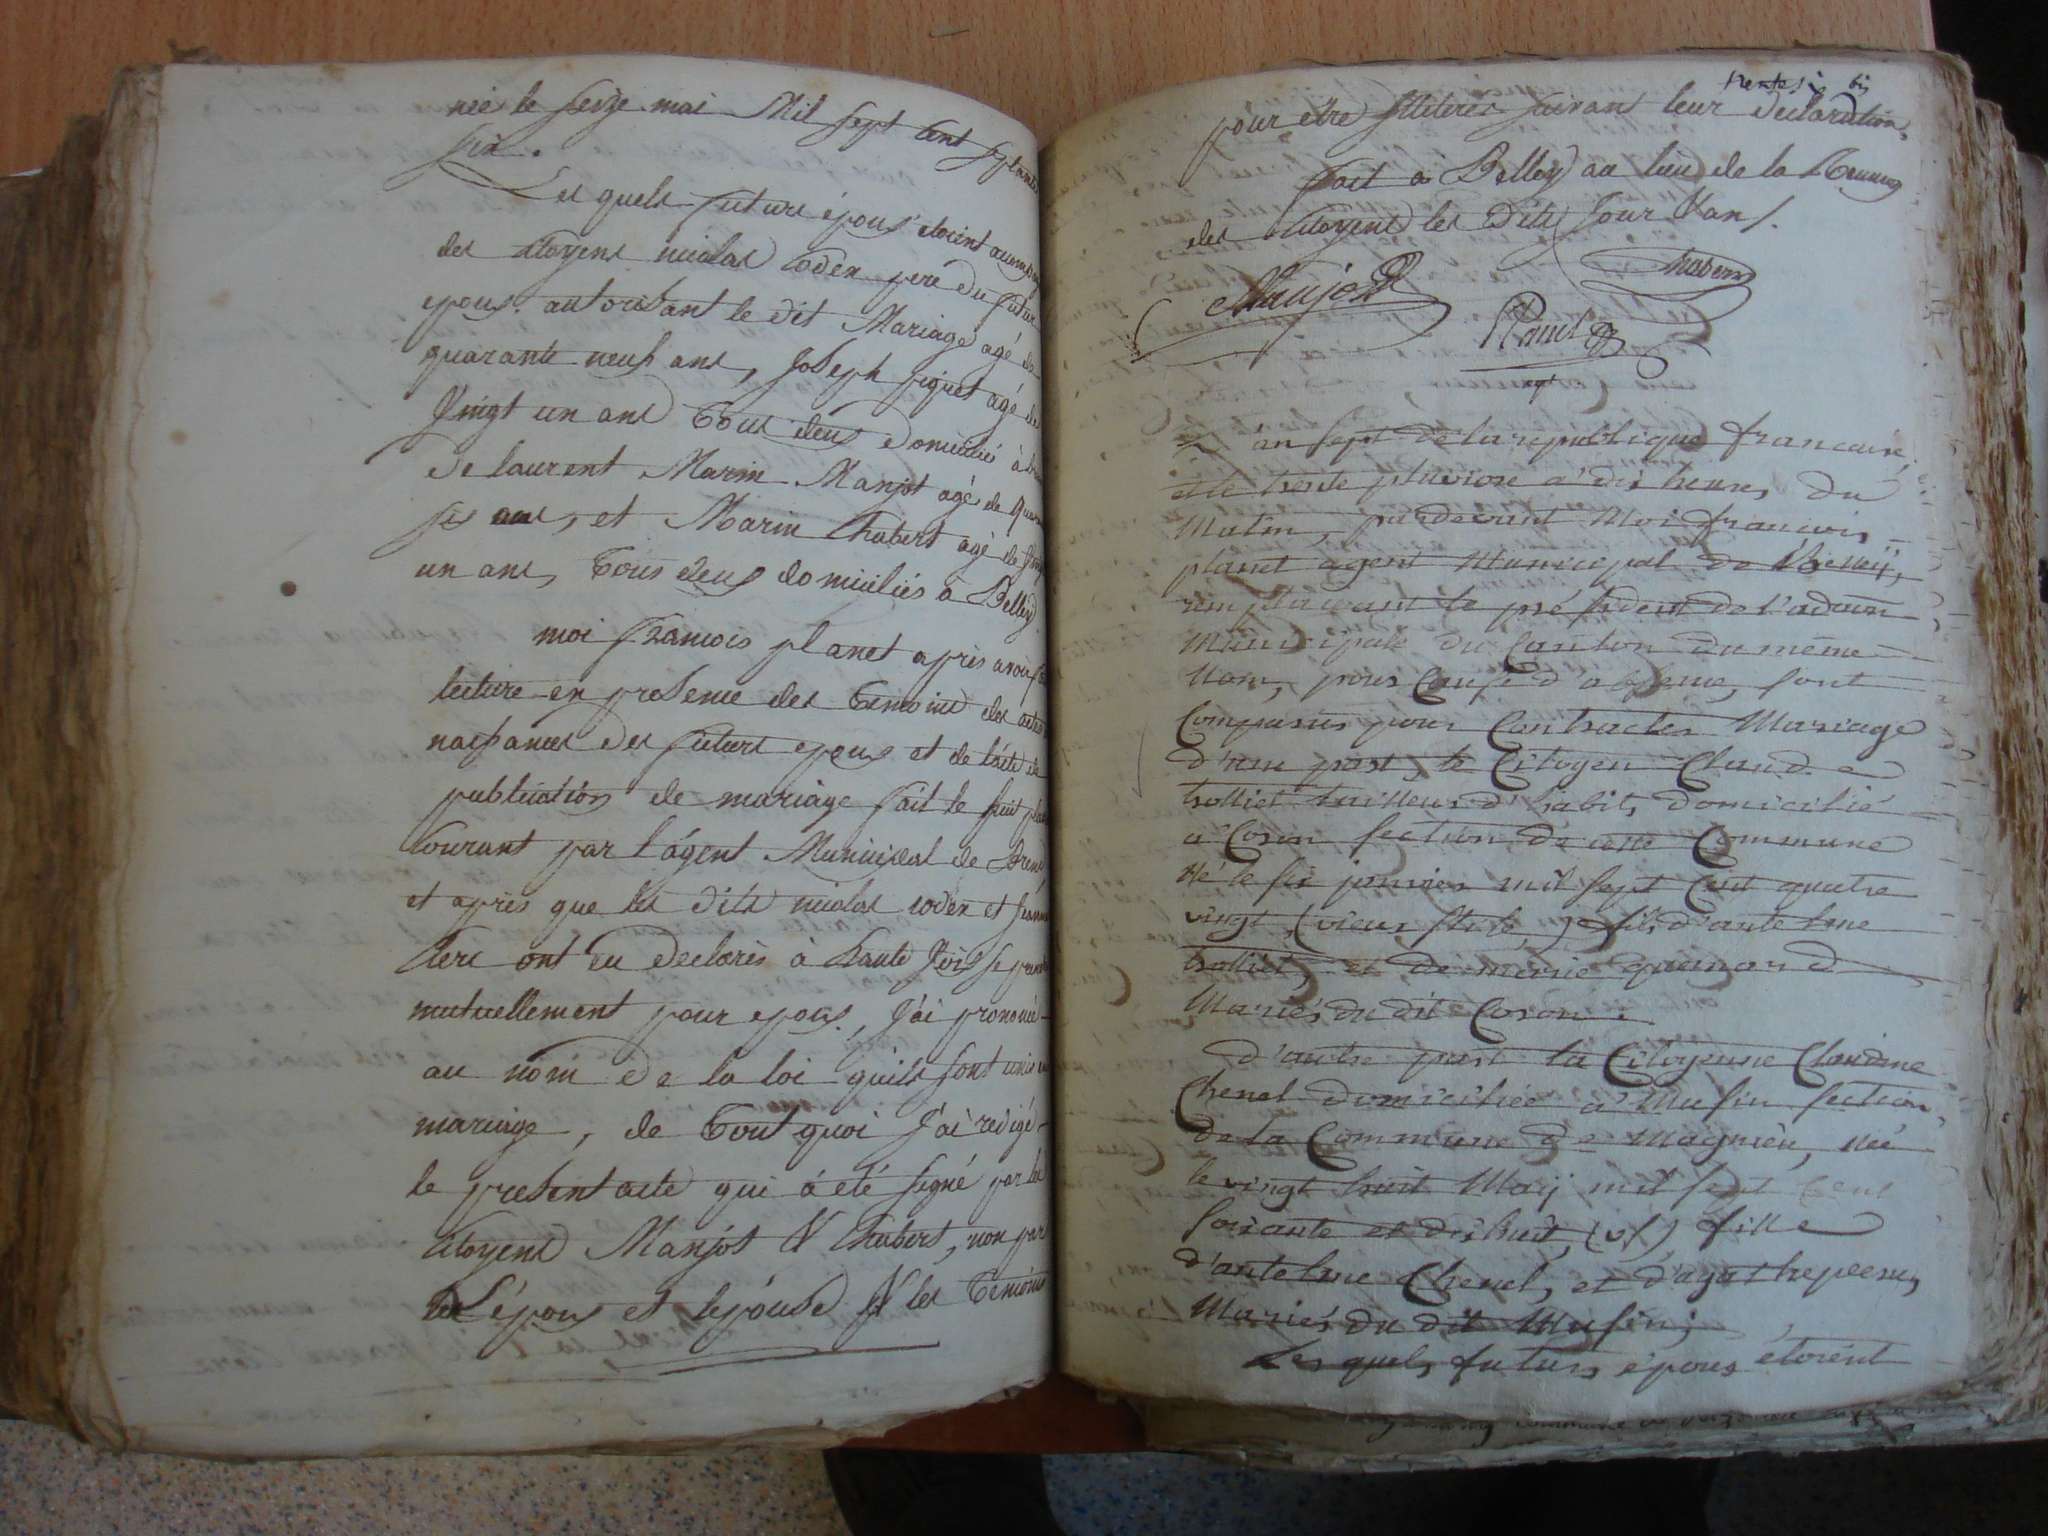 née le seize mai Mil sept Cent septante
six.
Les quels future épous étoint accompag
des citoyens nicolas coder pere du futur
epous autorisant le dit Mariage agé de
quarante neuf ans, Joseph piguet agé de
Vingt un ans Tous deus domicilié à
de laurent Marin Manjot agé de quar
six ans, et Marin Chabert agé de Vingt
un ans, Tous deus domiciliés à Belley
moi François planet apres avoir fait
lecture en presence des Temoins des actes
naissances des futurs epous et de l'acte de
publication de mariage fait le huit plu
Courant par l'ágent Municipal de
et après que les dits nicolas coder et jeanne
Clerc ont eu declarés à haute Voix se prendre
mutuellement pour epous, J'ai prononcé
au nom de la loi quils sont unis en
mariage, de Tout quoi J'ai redigé
le present acte qui á été signé par les
Citoyens Manjot & Chabert, non par
L'épous et lepouse & les Temoins
trente six bis
pour etre Illiteres suivant leur déclaration,
fait à Belley au lieu de la Reunion
des Citoyens les dits Jour & an /.
Manjot
Chabert
Planet
agt
L'an sept de la republique francaise,
et le trente pluviose a' dix heures du
Matin, pardevant Moi francois
planet agent Municipal de Belley,
remplaçant le président de l'admon
Municipale du Canton du même
Nom, pour Cause d'absence, sont
Comparus pour Contracter Mariage
d'une part le Citoyen Claude
trolliet tailleur d'habits domicilié
a' Coron section de cette Commune
Né le six janvier mil sept Cent quatre
vingt, (vieux stile,) fils d'antelme
trolliet, et de merie quinard
Mariés du dit Coron.
d'autre part la Citoyenne Claudine
Chenel domiciliée a' Musin section
de la Commune de Magnieu, née
le vingt huit Maij mil sept Cent
soixante et dix huit, (v s) fille
d'antelme Chenel, et d'agathe
Mariés du dit Musin;
Les quels futurs épous étoient